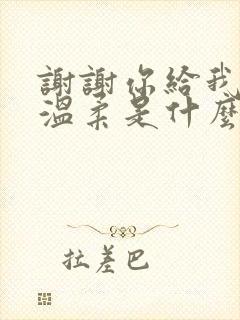 謝謝你給我
溫柔是什麼
拉差巴